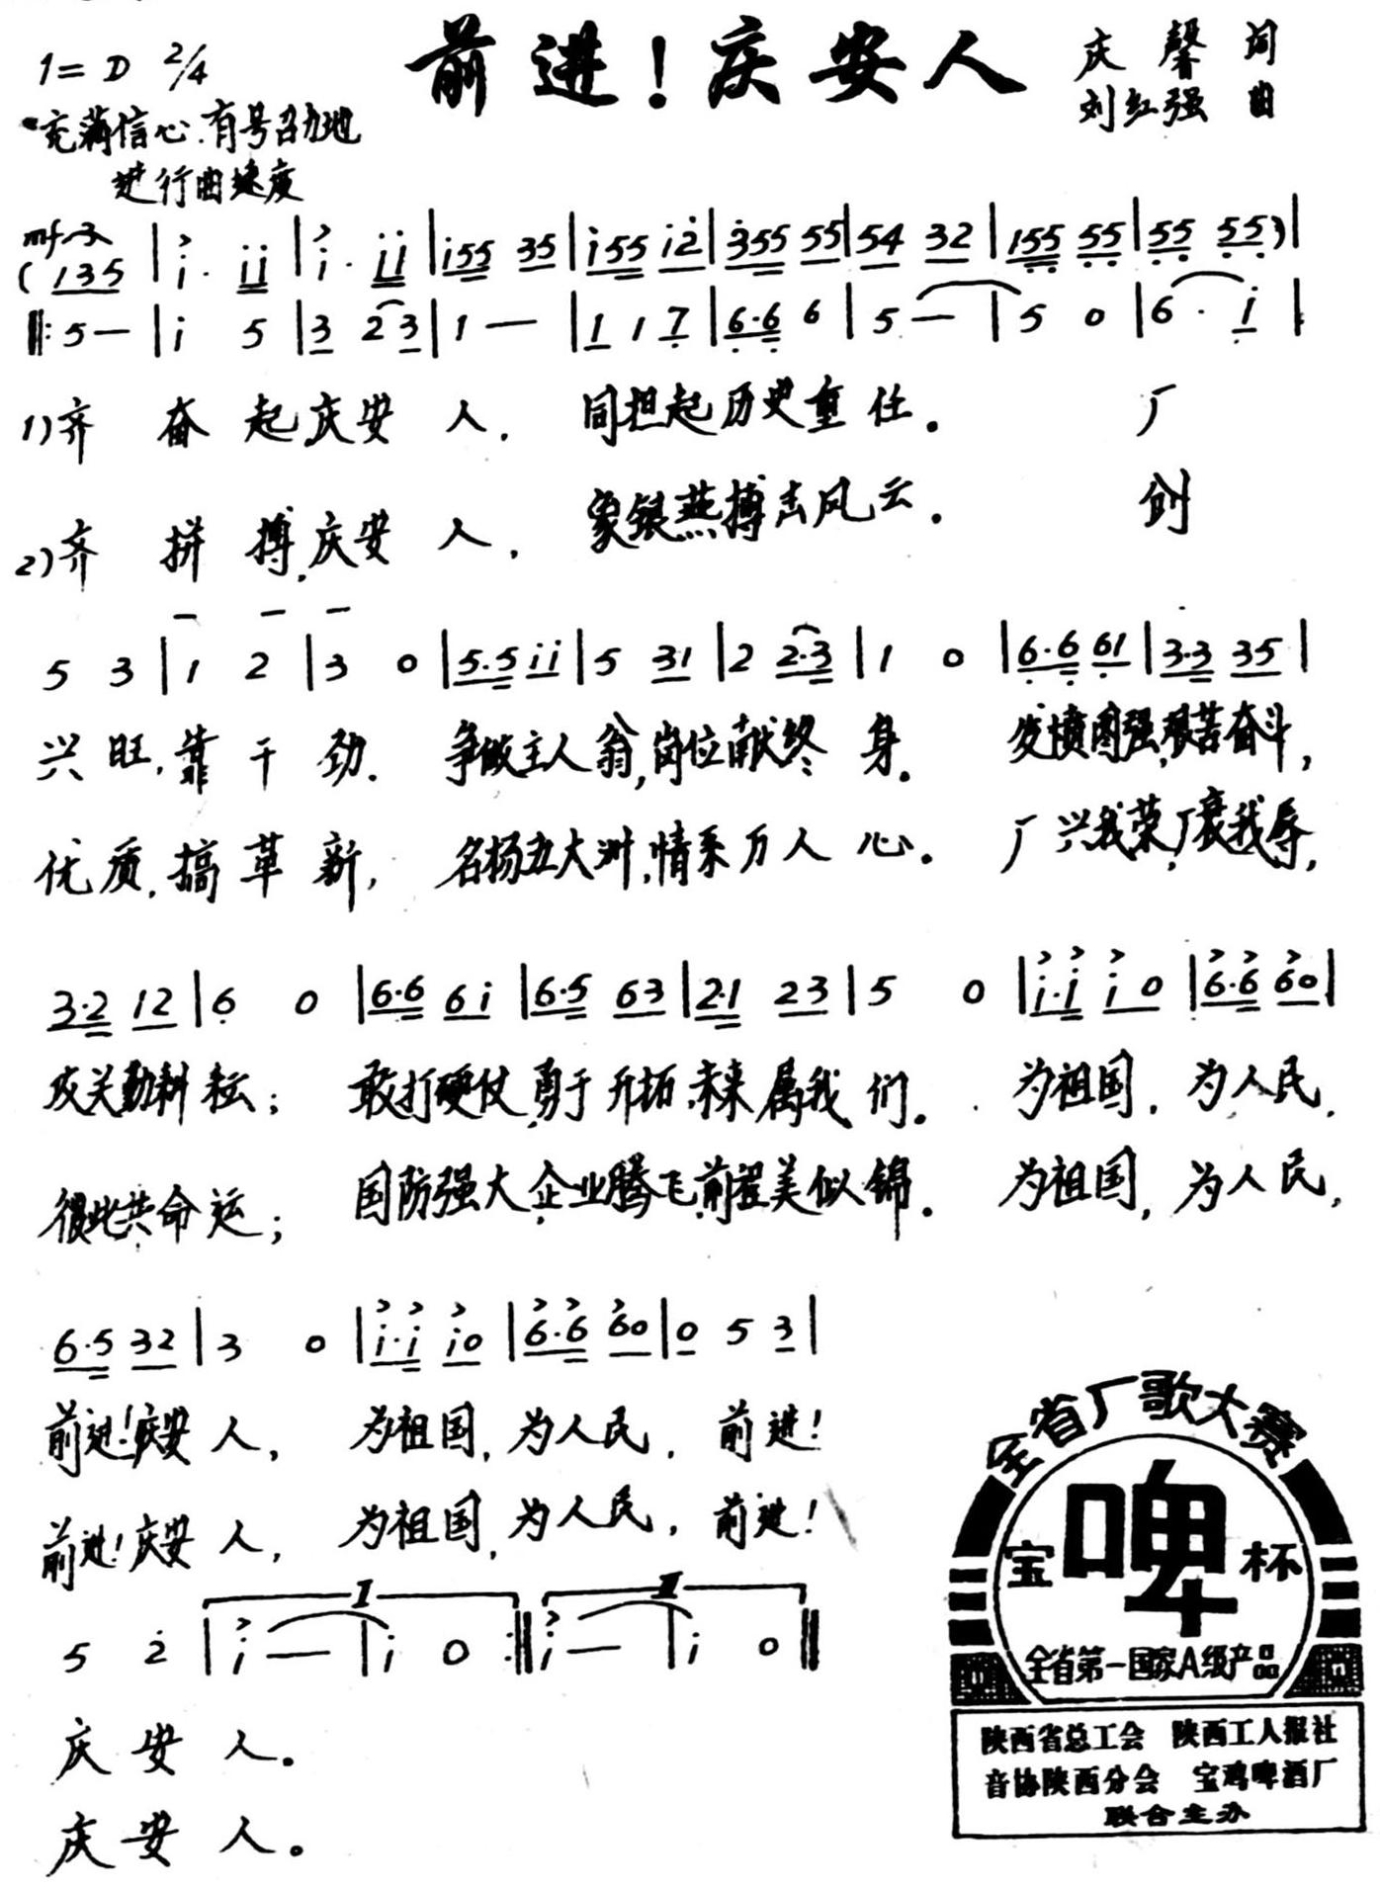 前进！庆安人
1=D 2/4
庆馨 词
刘红强 曲
充满信心.有号召力地
进行曲速度
mf 3
(135 | i· ii | i· ii | i55 35 | i55 i2 | 355 55 | 54 32 | 155 55 | 55 55) |
‖: 5— | i 5 | 3 23 | 1 — | 1 1 7 | 6·6 6 | 5 — | 5 0 | 6· i |
1)齐 奋 起,庆安 人. 同担起历史重 任. 厂
2)齐 拼 搏,庆安 人, 象银燕搏击风云. 创
5 3 | 1 2 | 3 0 | 5·5 ii | 5 31 | 2 2·3 | 1 0 | 6·6 61 | 3·3 35 |
兴旺,靠 干 劲. 争做主人翁,岗位献终 身. 发愤图强,艰苦奋斗,
优质,搞 革 新, 名扬五大洲,情系万人 心. 厂兴我荣,厂衰我辱,
3·2 12 | 6 0 | 6·6 6i | 6·5 63 | 2·1 23 | 5 0 | i·i i 0 | 6·6 60 |
攻关勤耕 耘; 敢打硬仗,勇于开拓,未来属我 们. 为祖国, 为人民,
彼此共命 运; 国防强大,企业腾飞,前程美似 锦. 为祖国, 为人民,
6·5 32 | 3 0 | i·i i0 | 6·6 60 | 0 5 3 |
前进!庆安 人, 为祖国, 为人民, 前进!
前进!庆安 人, 为祖国, 为人民, 前进!
I II
5 2 | i — | i 0 :‖ i — | i 0 ‖
庆 安 人.
庆 安 人。
全省厂歌大赛
宝啤杯
全省第一国家A级产品
陕西省总工会 陕西工人报社
音协陕西分会 宝鸡啤酒厂
联合主办